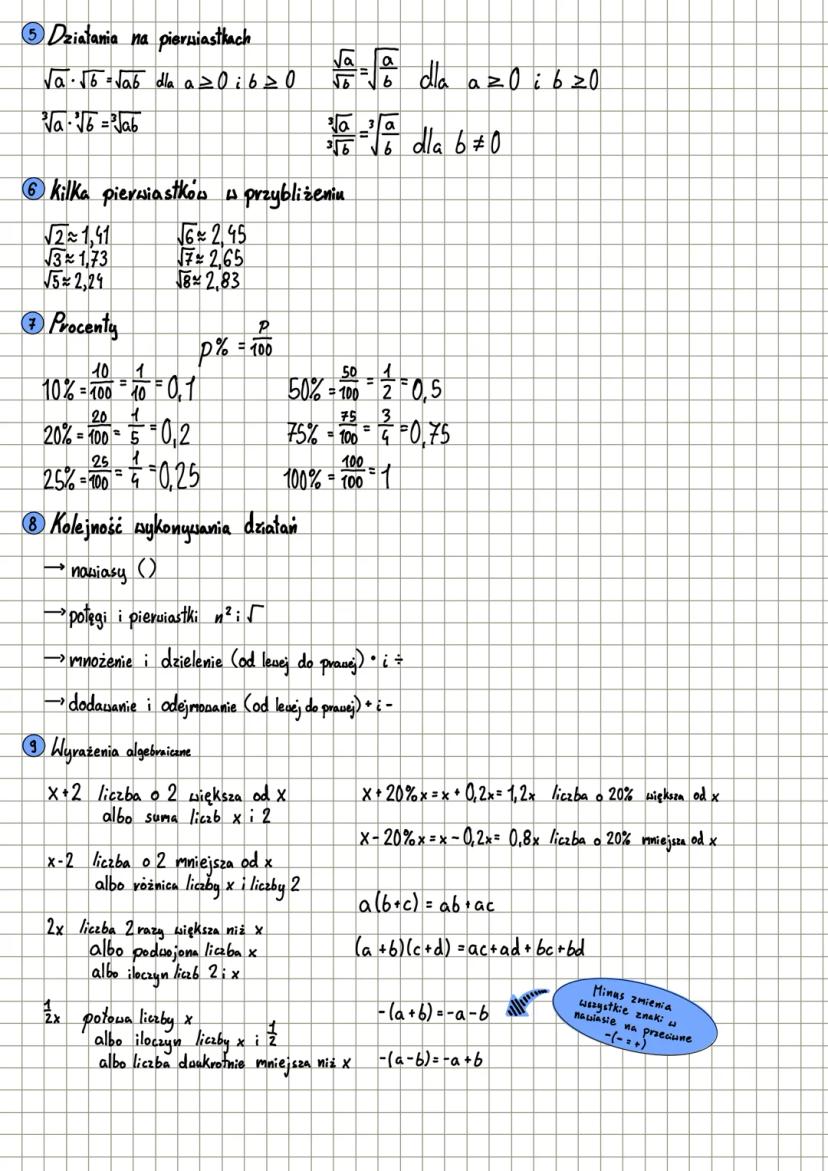 5 Działania na pierwiastkach
√a · √b = √ab dla a ≥ 0 i b ≥ 0
√a/√b = √(a/b) dla a ≥ 0 i b ≥ 0
³√a · ³√b = ³√ab
³√a/³√b = ³√(a/b) dla b ≠ 0
6 kilka pierwiastków w przybliżeniu
√2 ≈ 1,41 √6 ≈ 2,45
√3 ≈ 1,73 √7 ≈ 2,65
√5 ≈ 2,24 √8 ≈ 2,83
7 Procenty
p% = p/100
10% = 10/100 = 1/10 = 0,1 50% = 50/100 = 1/2 = 0,5
20% = 20/100 = 1/5 = 0,2 75% = 75/100 = 3/4 = 0,75
25% = 25/100 = 1/4 = 0,25 100% = 100/100 = 1
8 Kolejność wykonywania działań
→ nawiasy ()
→ potęgi i pierwiastki n² i √
→ mnożenie i dzielenie (od lewej do prawej) · i ÷
→ dodawanie i odejmowanie (od lewej do prawej) + i -
9 Wyrażenia algebraiczne
x+2 liczba o 2 większa od x
albo suma liczb x i 2
x-2 liczba o 2 mniejsza od x
albo różnica liczby x i liczby 2
2x liczba 2 razy większa niż x
albo podwojona liczba x
albo iloczyn liczb 2 i x
1/2x połowa liczby x
albo iloczyn liczby x i 1/2
albo liczba dwukrotnie mniejsza niż x
x + 20%x = x + 0,2x = 1,2x liczba o 20% większa od x
x - 20%x = x - 0,2x = 0,8x liczba o 20% mniejsza od x
a(b+c) = ab + ac
(a+b)(c+d) = ac + ad + bc + bd
-(a+b) = -a-b
-(a-b) = -a+b
Minus zmienia
wszystkie znaki w
nawiasie na przeciwne
-(- = +)